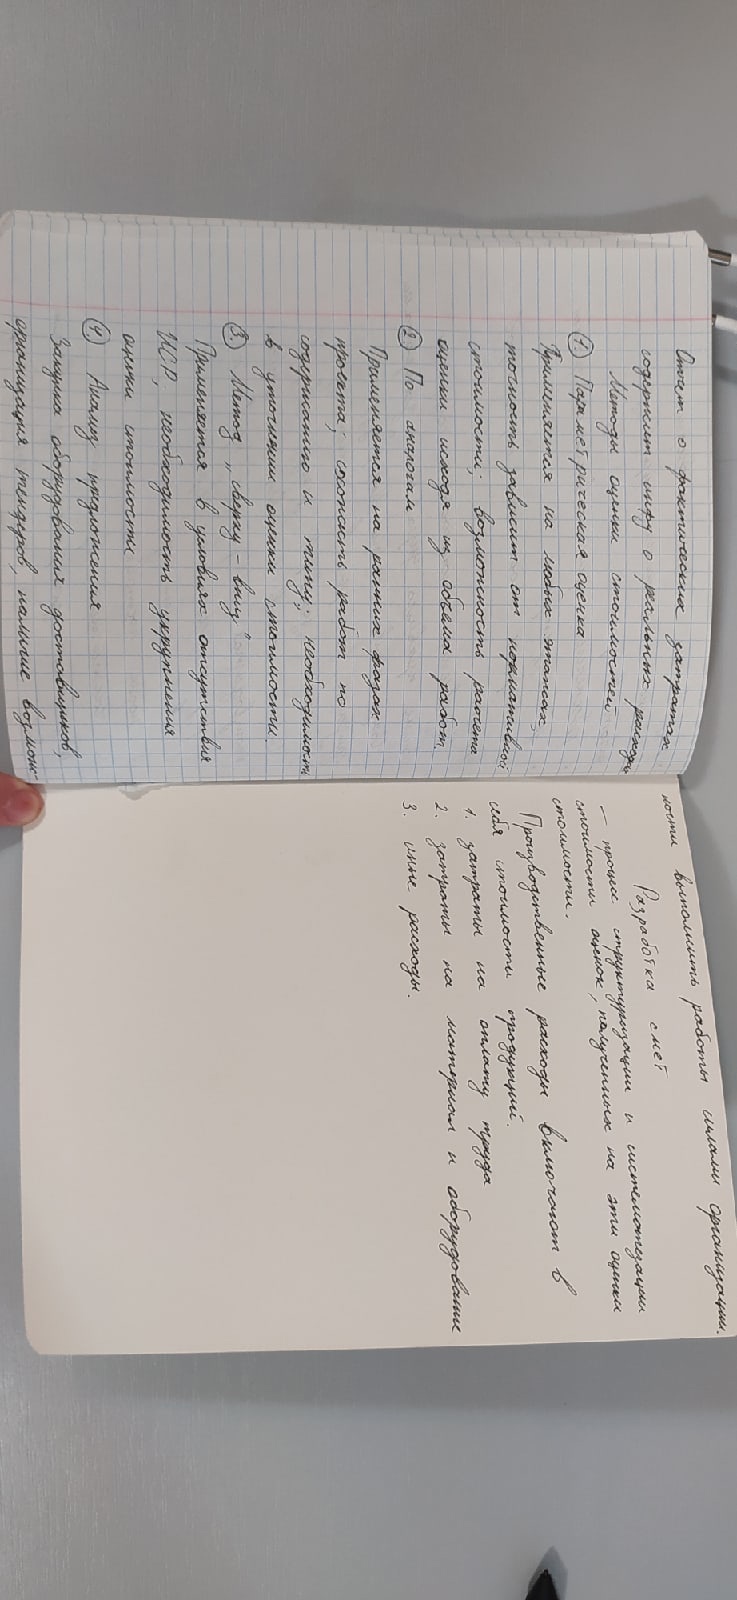 Отчет о фактических затратах
содержит инфу о реальных расходах
Методы оценки стоимостей
1. Параметрическая оценка
Применяется на любых этапах,
точность зависит от нормативной
стоимости; возможность расчета
оценки исходя из объема работ.
2) По аналогам
Применяется на ранних фазах
проекта; схожесть работ по
содержанию и типу; необходимость
в уточнении оценки стоимости.
3. Метод "сверху - вниз"
Применяется в условиях отсутствия
ИСР, необходимость укрупнения
оценки стоимости
4. Анализ предложения
Закупка оборудования доставщиков,
организация тендеров, наличие возмож-
ности выполнить работы силами организации.
Разработка смет
— процесс структуризации и систематезации
стоимости оценок, полученных на эти оценки
стоимости.
Производственные расходы включают в
себя стоимости продукций.
1. затраты на оплату труда
2. затраты на материал и оборудование
3. иные расходы.